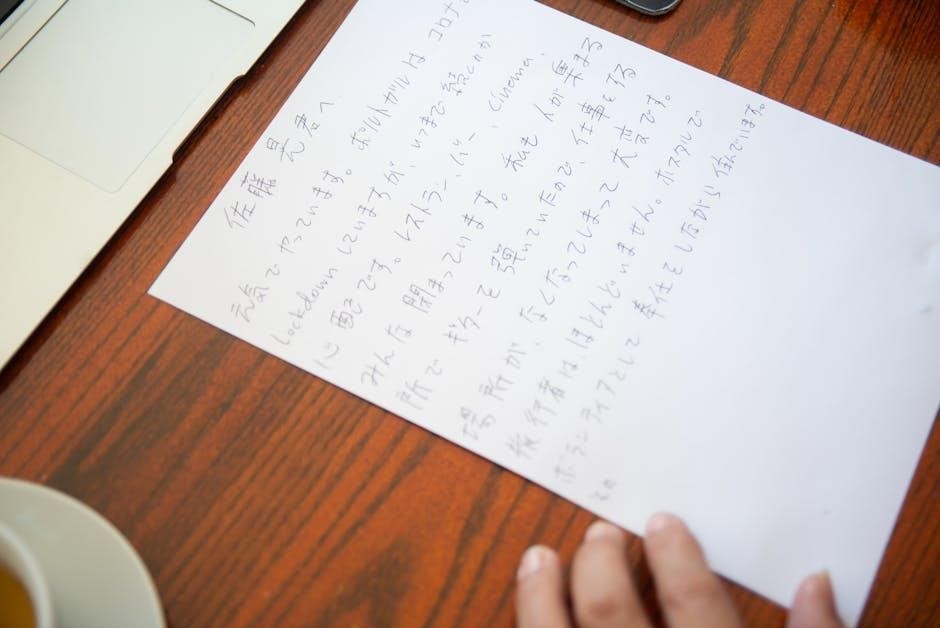 佐藤 晃君へ
元気でやっています。ポルトガルは コロナで
Lockdown していますが、いつまで続くのか
心配です。レストラン、バー、Cinema、
みんな 閉まっています。私も 人が 集まる
所で ギターを 弾いていたので、仕事をする
場所が、なくなってしまって 大変です。
旅行者は、ほとんどいません。ホスタルで
ボランティアとして 奉仕を しながら 住んでいます。